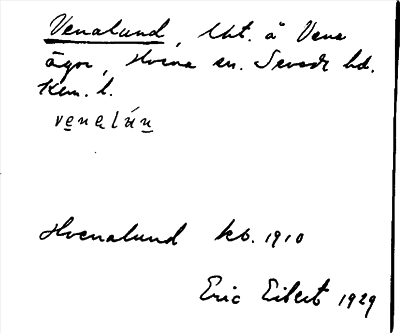 Venalund, Uht. å Vena
ägor, Hvena sn. Sevede hd.
Km. l.
venalún
Hvenalund kb. 1910
Eric Eibert 1929